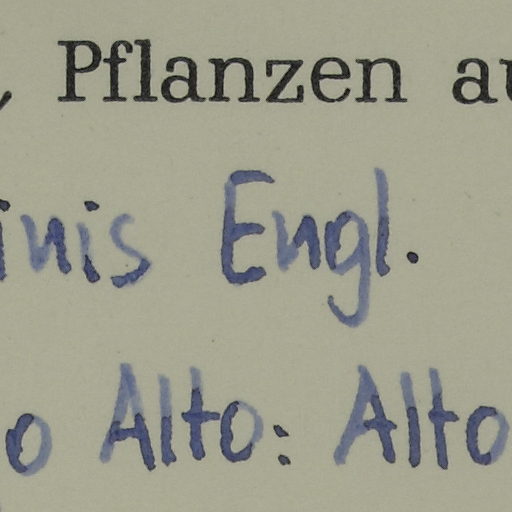 Pflanzen au
inis Engl.
o Alto: Alto